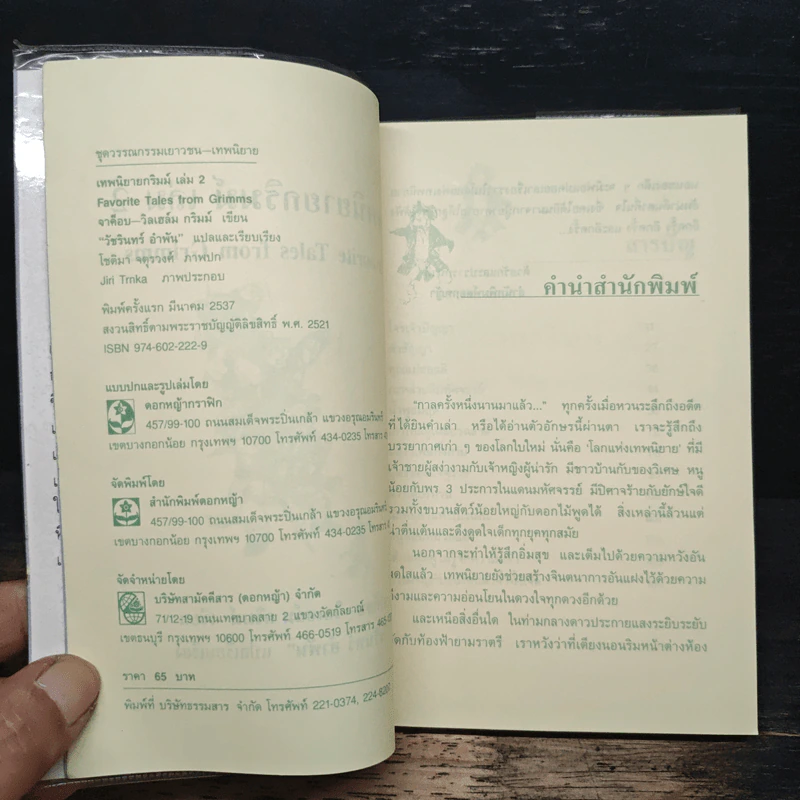 ชุดวรรณกรรมเยาวชน—เทพนิยาย
เทพนิยายกริมม์ เล่ม 2
Favorite Tales from Grimms
จาค็อบ-วิลเฮล์ม กริมม์ เขียน
"วัชรินทร์ อำพัน" แปลและเรียบเรียง
โชติมา จตุรวงค์ ภาพปก
Jiri Trnka ภาพประกอบ
พิมพ์ครั้งแรก มีนาคม 2537
สงวนสิทธิ์ตามพระราชบัญญัติลิขสิทธิ์ พ.ศ. 2521
ISBN 974-602-222-9
แบบปกและรูปเล่มโดย
ดอกหญ้ากราฟิก
457/99-100 ถนนสมเด็จพระปิ่นเกล้า แขวงอรุณอมรินทร์
เขตบางกอกน้อย กรุงเทพฯ 10700 โทรศัพท์ 434-0235 โทรสาร
จัดพิมพ์โดย
สำนักพิมพ์ดอกหญ้า
457/99-100 ถนนสมเด็จพระปิ่นเกล้า แขวงอรุณอมรินทร์
เขตบางกอกน้อย กรุงเทพฯ 10700 โทรศัพท์ 434-0235 โทรสาร
จัดจำหน่ายโดย
บริษัทสามัคคีสาร (ดอกหญ้า) จำกัด
71/12-19 ถนนเทศบาลสาย 2 แขวงวัดกัลยาณ์
เขตธนบุรี กรุงเทพฯ 10600 โทรศัพท์ 466-0519 โทรสาร
ราคา 65 บาท
พิมพ์ที่ บริษัทธรรมสาร จำกัด โทรศัพท์ 221-0374,
คำนำสำนักพิมพ์
"กาลครั้งหนึ่งนานมาแล้ว..." ทุกครั้งเมื่อหวนระลึกถึงอดีต
ที่ได้ยินคำเล่า หรือได้อ่านตัวอักษรนี้ผ่านตา เราจะรู้สึกถึง
บรรยากาศเก่า ๆ ของโลกใบใหม่ นั่นคือ 'โลกแห่งเทพนิยาย' ที่มี
เจ้าชายผู้สง่างามกับเจ้าหญิงผู้น่ารัก มีชาวบ้านกับของวิเศษ หนู
น้อยกับพร 3 ประการในแดนมหัศจรรย์ มีปิศาจร้ายกับยักษ์ใจดี
รวมทั้งขบวนสัตว์น้อยใหญ่กับดอกไม้พูดได้ สิ่งเหล่านี้ล้วนแต่
น่าตื่นเต้นและดึงดูดใจเด็กทุกยุคทุกสมัย
นอกจากจะทำให้รู้สึกอิ่มสุข และเต็มไปด้วยความหวังอัน
สดใสแล้ว เทพนิยายยังช่วยสร้างจินตนาการอันแฝงไว้ด้วยความ
ดีงามและความอ่อนโยนในดวงใจทุกดวงอีกด้วย
และเหนือสิ่งอื่นใด ในท่ามกลางดาวประกายแสงระยิบระยับ
ตัดกับท้องฟ้ายามราตรี เราหวังว่าที่เตียงนอนริมหน้าต่างห้อง